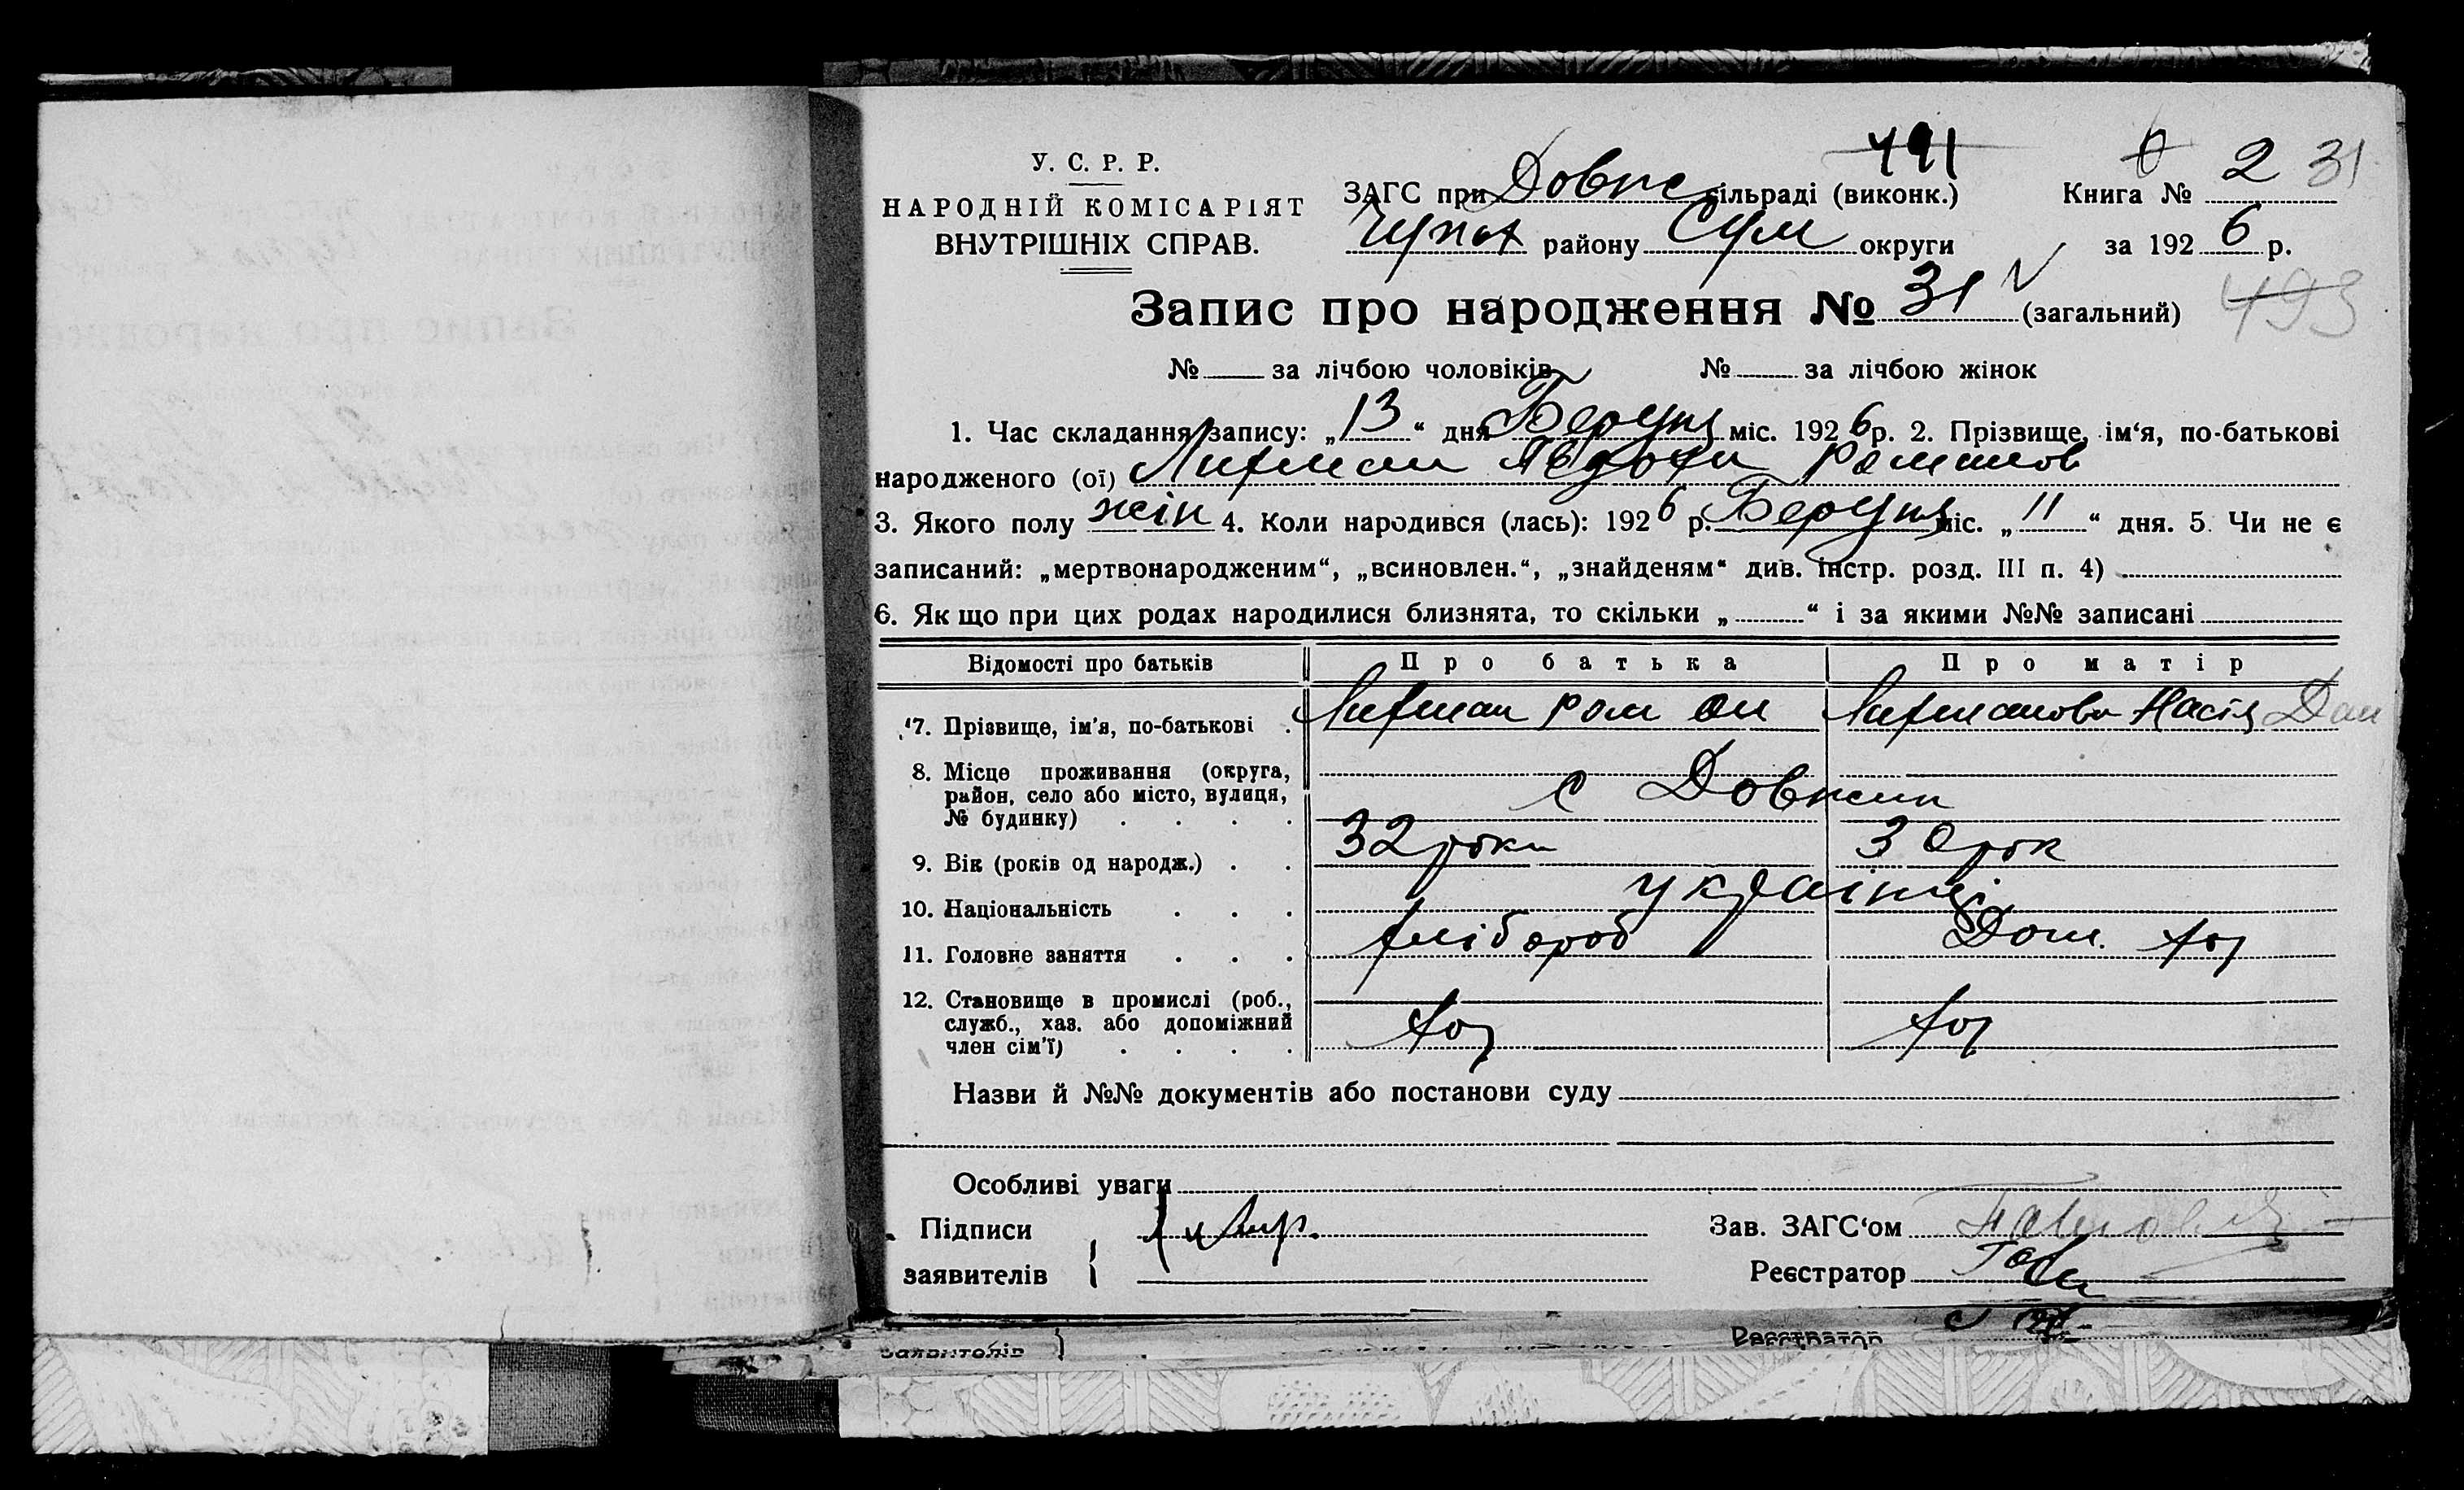 У. С. Р. Р.
НАРОДНІЙ КОМІСАРІЯТ
ВНУТРІШНІХ СПРАВ.
491
ЗАГС при Довж сільраді (виконк.)
района Сум округи
Книга № 2 31
за 1926 р.
Запис про народження № 31 (загальний)
493
№ за лічбою чоловіків № за лічбою жінок
1. Час складання запису: „13“ дня Березня міс. 1926 р. 2. Прізвище, ім‘я, по-батькові
народженого (ої) Лифман Явдоха Романов
3. Якого полу жін 4. Коли народився (лась): 1926 р. Березня міс. „11“ дня. 5. Чи не є
записаний: „мертвонародженим“, „всиновлен.“, „знайденям“ див. інстр. розд. III п. 4)
6. Як що при цих родах народилися близнята, то скільки „ “ і за якими №№ записані
Відомості про батьків Про батька Про матір
7. Прізвище, ім'я, по-батькові . Лифман Роман Лифманова Настя Дан
8. Місце проживання (округа,
район, село або місто, вулиця,
№ будинку) . . . . с Довжик
9. Вік (років од народж.) . . 32 роки 30 рок
10. Національність . . . українці
11. Головне заняття . . . хлібороб Дом. хоз
12. Становище в промислі (роб.,
служб., хаз. або допоміжний
член сім'ї) . . . . хоз хоз
Назви й №№ документів або постанови суду
Особливі уваги
Підписи
Зав. ЗАГС‘ом
заявителів
Реєстратор
Реєстратор
заявителів